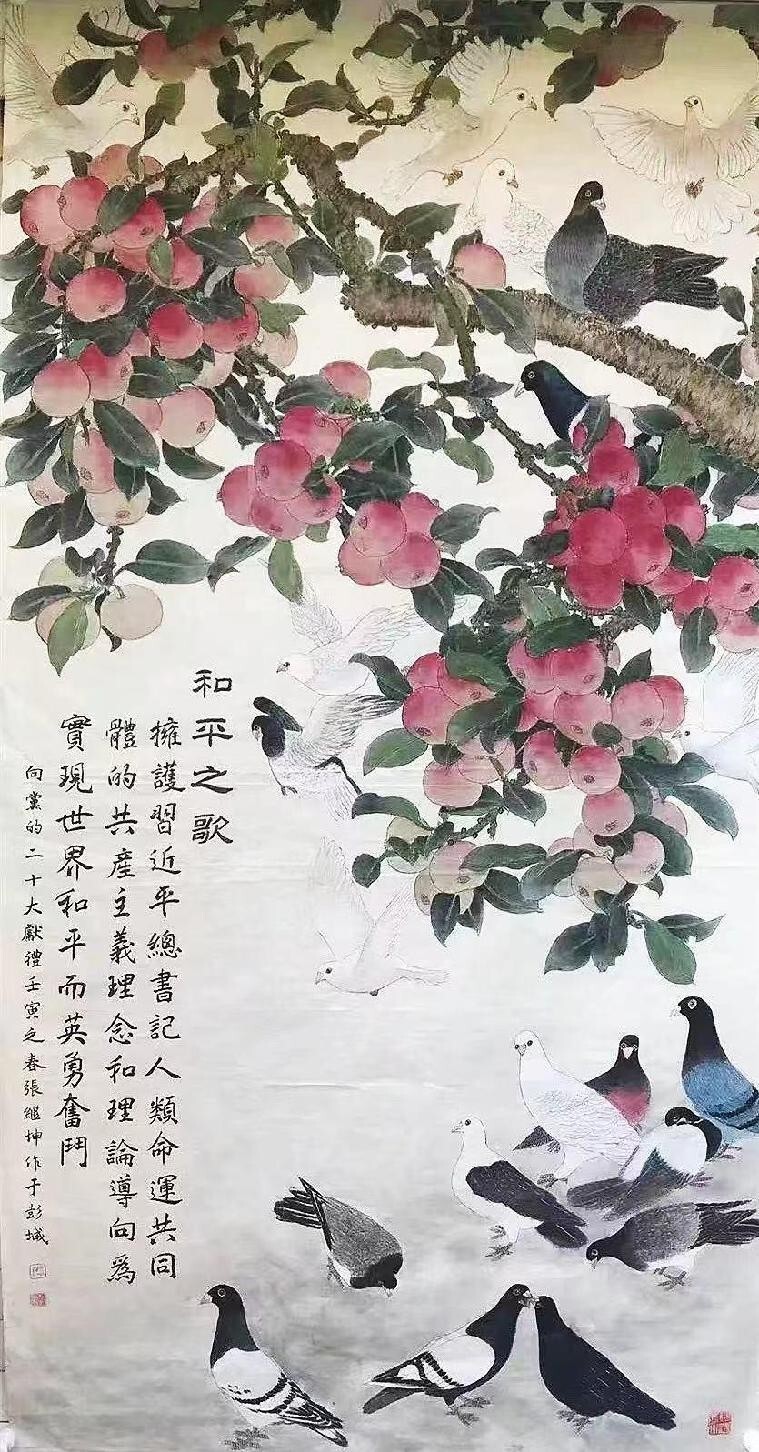 和平之歌
擁護習近平總書記人類命運共同
體的共產主義理念和理論導向爲
實現世界和平而英勇奮鬥
向黨的二十大獻禮壬寅之春張繼坤作于彭城